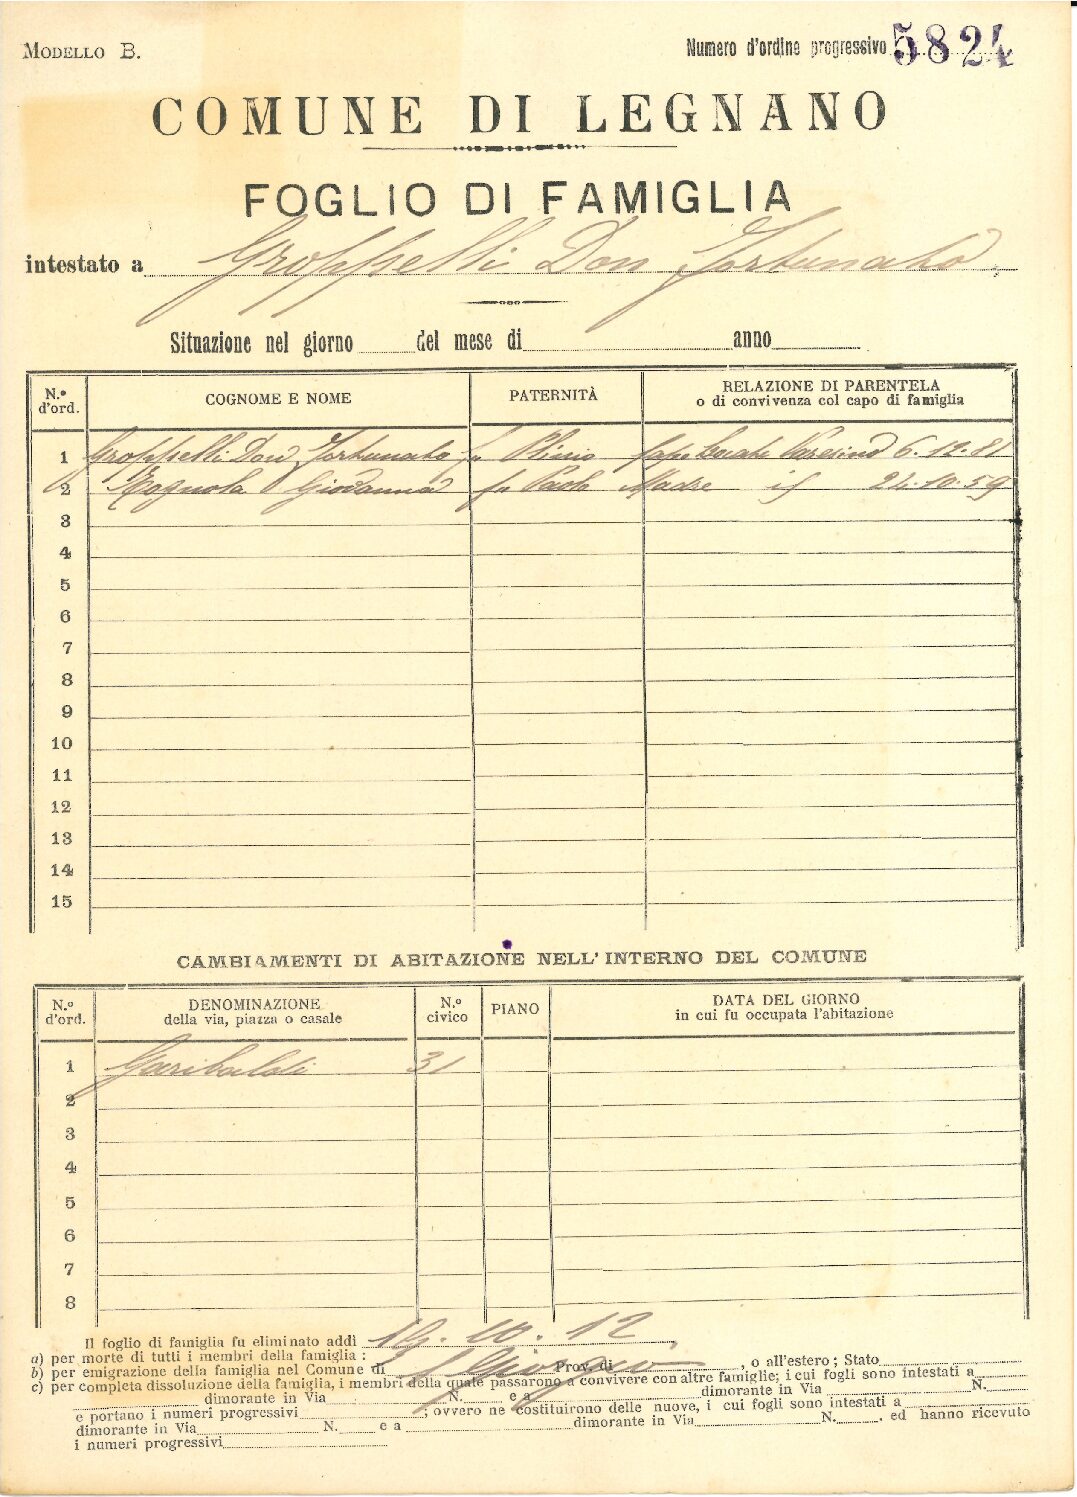 MODELLO B.
Numero d'ordine progressivo 5824
COMUNE DI LEGNANO
FOGLIO DI FAMIGLIA
intestato a Groppelli Don Fortunato
Situazione nel giorno del mese di anno
N.º d'ord. COGNOME E NOME PATERNITÀ RELAZIONE DI PARENTELA
o di convivenza col capo di famiglia
1 Groppelli Don Fortunato fu Plinio capo Locate Varesino 6.12.81
2 Giovanna fu Paolo Madre 24.10.59
3
4
5
6
7
8
9
10
11
12
13
14
15
CAMBIAMENTI DI ABITAZIONE NELL'INTERNO DEL COMUNE
N.º d'ord. DENOMINAZIONE N.º civico PIANO DATA DEL GIORNO
della via, piazza o casale in cui fu occupata l'abitazione
1 Garibaldi 31
2
3
4
5
6
7
8
Il foglio di famiglia fu eliminato addì 10.12
a) per morte di tutti i membri della famiglia :
b) per emigrazione della famiglia nel Comune di S. Giorgio Prov. di , o all'estero ; Stato
c) per completa dissoluzione della famiglia, i membri della quale passarono a convivere con altre famiglie; i cui fogli sono intestati a
dimorante in Via N. e a dimorante in Via N.
e portano i numeri progressivi ; ovvero ne costituirono delle nuove, i cui fogli sono intestati a
dimorante in Via N. e a dimorante in Via N. , ed hanno ricevuto
i numeri progressivi